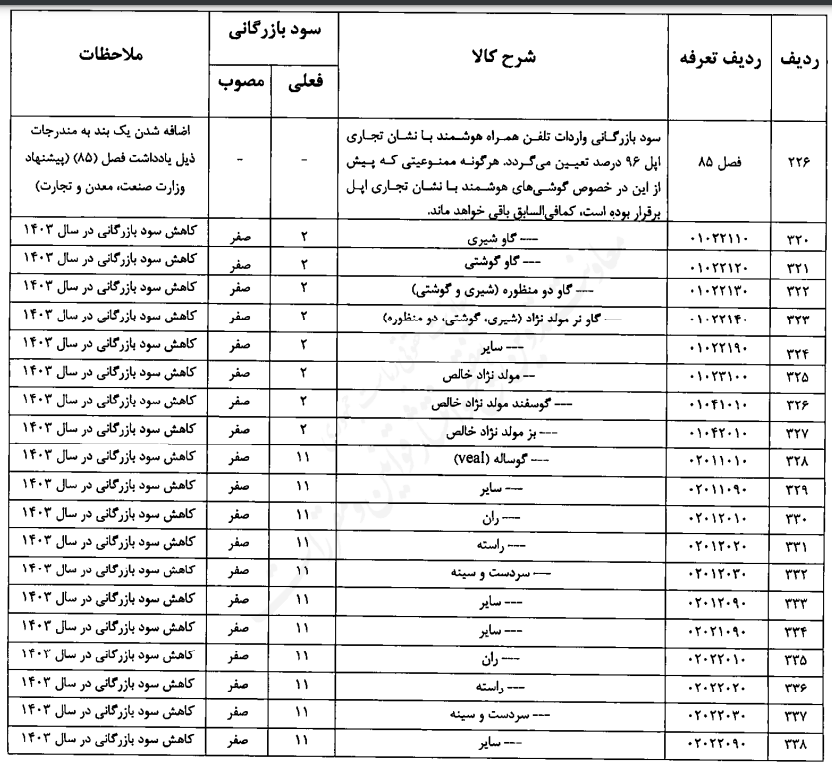 ردیف | ردیف تعرفه | شرح کالا | سود بازرگانی | ملاحظات
فعلی | مصوب
۲۲۶ | فصل ۸۵ | سود بازرگانی واردات تلفن همراه هوشمند با نشان تجاری | - | - | اضافه شدن یک بند به مندرجات
اپل ۹۶ درصد تعیین می‌گردد. هرگونه ممنوعیتی که پیش | ذیل یادداشت فصل (۸۵) (پیشنهاد
از این در خصوص گوشی‌های هوشمند با نشان تجاری اپل | وزارت صنعت، معدن و تجارت)
برقرار بوده است، کمافی‌السابق باقی خواهد ماند.
۳۲۰ | ۰۱۰۲۲۱۱۰ | --- گاو شیری | ۲ | صفر | کاهش سود بازرگانی در سال ۱۴۰۳
۳۲۱ | ۰۱۰۲۲۱۲۰ | --- گاو گوشتی | ۲ | صفر | کاهش سود بازرگانی در سال ۱۴۰۳
۳۲۲ | ۰۱۰۲۲۱۳۰ | --- گاو دو منظوره (شیری و گوشتی) | ۲ | صفر | کاهش سود بازرگانی در سال ۱۴۰۳
۳۲۳ | ۰۱۰۲۲۱۴۰ | --- گاو نر مولد نژاد (شیری، گوشتی، دو منظوره) | ۲ | صفر | کاهش سود بازرگانی در سال ۱۴۰۳
۳۲۴ | ۰۱۰۲۲۱۹۰ | --- سایر | ۲ | صفر | کاهش سود بازرگانی در سال ۱۴۰۳
۳۲۵ | ۰۱۰۲۳۱۰۰ | -- مولد نژاد خالص | ۲ | صفر | کاهش سود بازرگانی در سال ۱۴۰۳
۳۲۶ | ۰۱۰۴۱۰۱۰ | --- گوسفند مولد نژاد خالص | ۲ | صفر | کاهش سود بازرگانی در سال ۱۴۰۳
۳۲۷ | ۰۱۰۴۲۰۱۰ | --- بز مولد نژاد خالص | ۲ | صفر | کاهش سود بازرگانی در سال ۱۴۰۳
۳۲۸ | ۰۲۰۱۱۰۱۰ | --- گوساله (veal) | ۱۱ | صفر | کاهش سود بازرگانی در سال ۱۴۰۳
۳۲۹ | ۰۲۰۱۱۰۹۰ | --- سایر | ۱۱ | صفر | کاهش سود بازرگانی در سال ۱۴۰۳
۳۳۰ | ۰۲۰۱۲۰۱۰ | --- ران | ۱۱ | صفر | کاهش سود بازرگانی در سال ۱۴۰۳
۳۳۱ | ۰۲۰۱۲۰۲۰ | --- راسته | ۱۱ | صفر | کاهش سود بازرگانی در سال ۱۴۰۳
۳۳۲ | ۰۲۰۱۲۰۳۰ | --- سردست و سینه | ۱۱ | صفر | کاهش سود بازرگانی در سال ۱۴۰۳
۳۳۳ | ۰۲۰۱۲۰۹۰ | --- سایر | ۱۱ | صفر | کاهش سود بازرگانی در سال ۱۴۰۳
۳۳۴ | ۰۲۰۲۱۰۹۰ | --- سایر | ۱۱ | صفر | کاهش سود بازرگانی در سال ۱۴۰۳
۳۳۵ | ۰۲۰۲۲۰۱۰ | --- ران | ۱۱ | صفر | کاهش سود بازرگانی در سال ۱۴۰۳
۳۳۶ | ۰۲۰۲۲۰۲۰ | --- راسته | ۱۱ | صفر | کاهش سود بازرگانی در سال ۱۴۰۳
۳۳۷ | ۰۲۰۲۲۰۳۰ | --- سردست و سینه | ۱۱ | صفر | کاهش سود بازرگانی در سال ۱۴۰۳
۳۳۸ | ۰۲۰۲۲۰۹۰ | --- سایر | ۱۱ | صفر | کاهش سود بازرگانی در سال ۱۴۰۳